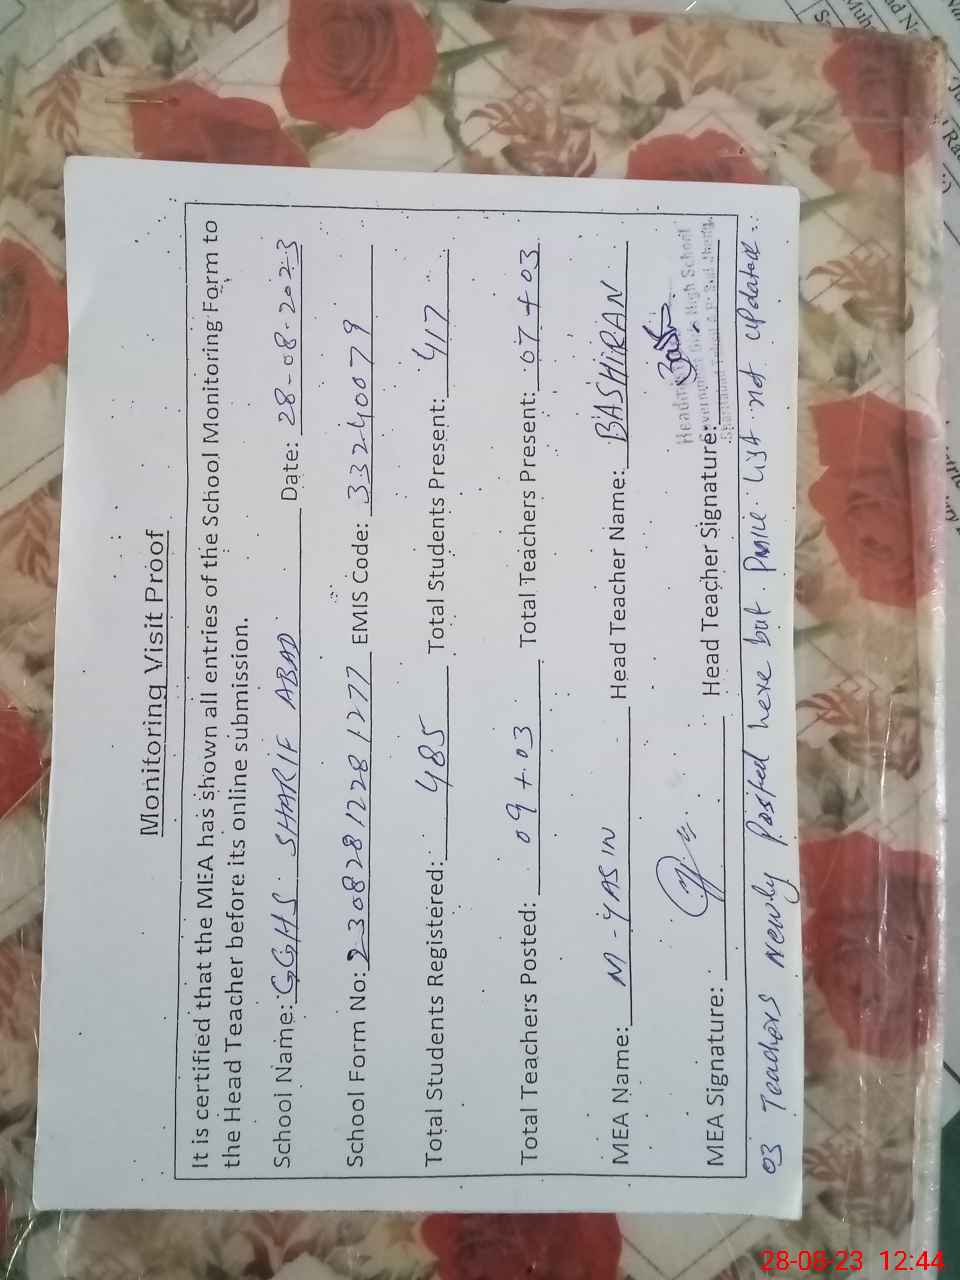 Monitoring Visit Proof
It is certified that the MEA has shown all entries of the School Monitoring Form to
the Head Teacher before its online submission.
School Name: GGHS SHARIF ABAD Date: 28-08-2023
School Form No: 23082812281277 EMIS Code: 33240079
Total Students Registered: 485 Total Students Present: 417
Total Teachers Posted: 09 + 03 Total Teachers Present: 07 + 03
MEA Name: M - YASIN Head Teacher Name: BASHIRAN
Headm High School
MEA Signature: Head Teacher Signature:
03 Teachers Newly Posted here but list not updated
28-08-23 12:44